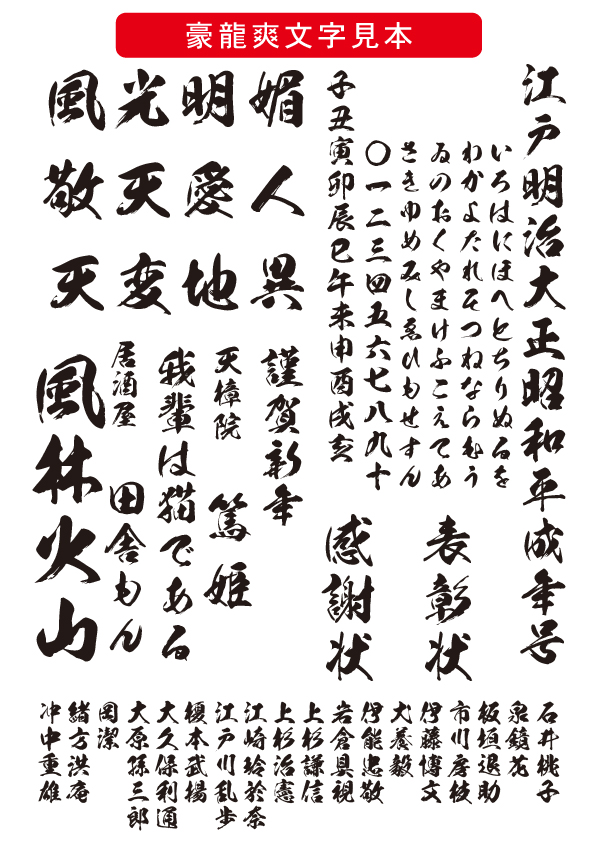 豪龍爽文字見本
江戸明治大正昭和平成年号
いろはにほへとちりぬるを
わかよたれそつねならむう
ゐのおくやまけふこえてあ
さきゆめみしゑひもせすん
〇一二三四五六七八九十
子丑寅卯辰巳午未申酉戌亥
媚人異
明愛地
光天変
風敬天
表彰状
感謝状
謹賀新年
天樟院
篤姫
我輩は猫である
居酒屋
田舎もん
風林火山
石井桃子
泉鏡花
板垣退助
市川房枝
伊藤博文
犬養毅
伊能忠敬
岩倉具視
上杉謙信
上杉治憲
江崎玲於奈
江戸川乱歩
榎本武揚
大久保利通
大原孫三郎
岡潔
緒方洪庵
沖中重雄